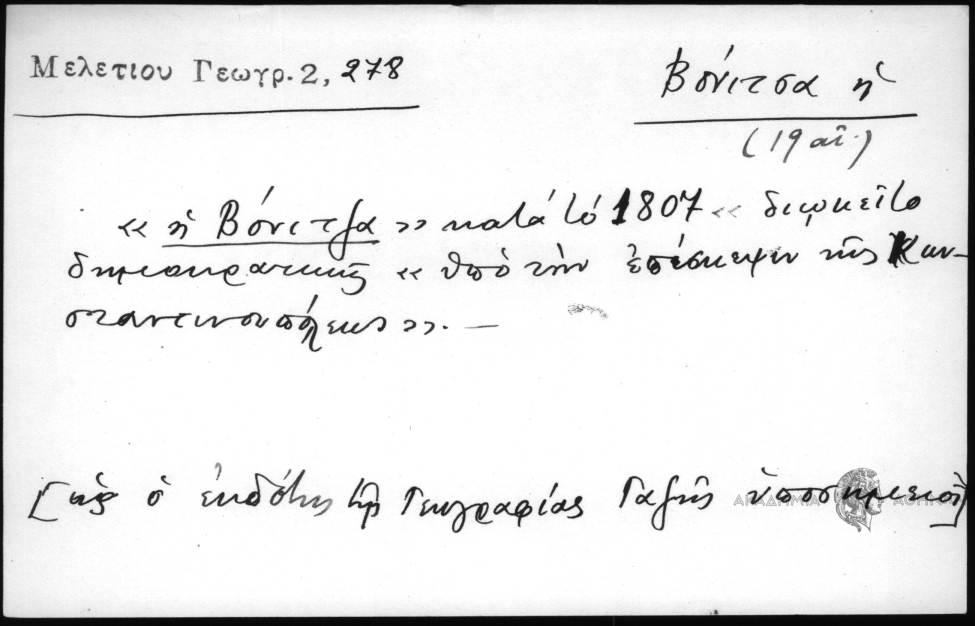 Μελετιου Γεωγρ. 2, 278
Βόνιτσα ἡ
(19 αἰ.)
« ἡ Βόνιτζα » κατὰ τὸ 1807 « διῳκεῖτο
δημοκρατικῶς « ὑπὸ τὴν ἐπίσκεψιν τῆς Κων-
σταντινουπόλεως ». —
[ὡς ὁ ἐκδότης τῆς Γεωγραφίας Γαζῆς ὑποσημειοῖ]
ΑΚΑΔΗΜΙΑ ΑΘΗΝΩΝ